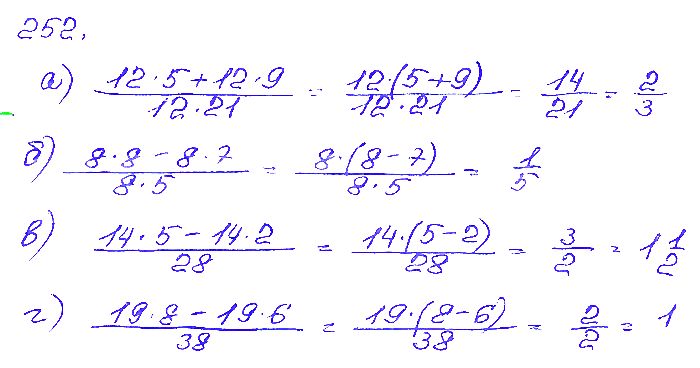 252.
а) (12·5+12·9)/(12·21) = (12·(5+9))/(12·21) = 14/21 = 2/3
б) (8·8-8·7)/(8·5) = (8·(8-7))/(8·5) = 1/5
в) (14·5-14·2)/28 = (14·(5-2))/28 = 3/2 = 1 1/2
г) (19·8-19·6)/38 = (19·(8-6))/38 = 2/2 = 1